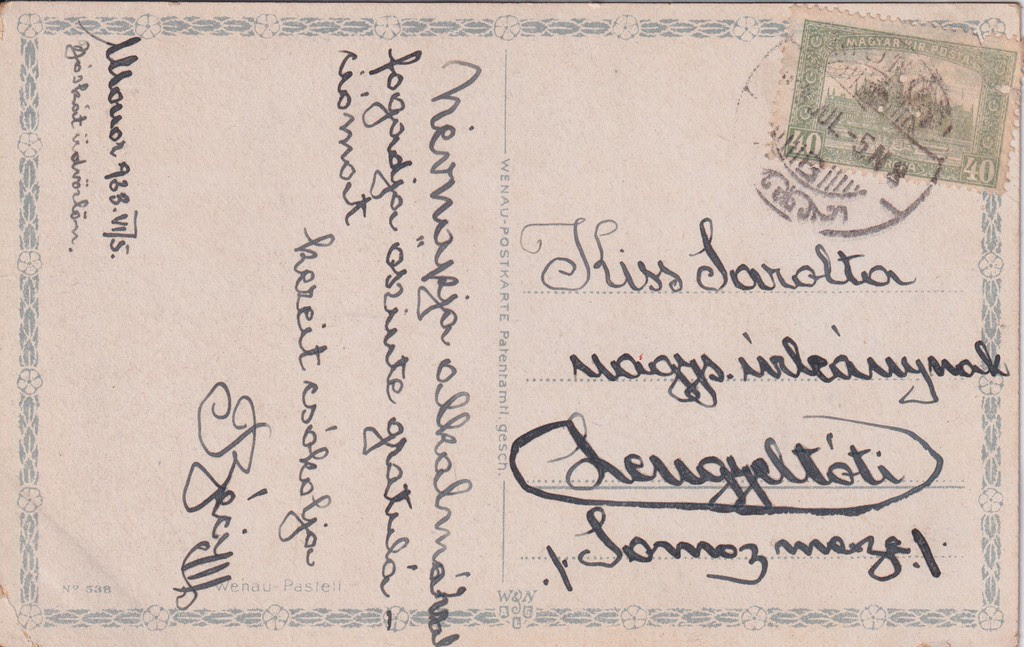 Monor 923. VII/5.
Jóskát üdvözlöm.
Névnapja alkalmával
fogadja őszinte gratulá-
ciómat
kezeit csókolja
WENAU-POSTKARTE Patentamtl. gesch.
MAGYAR KIR. POSTA
40 40
JUL.-5.N8
Kiss Sarolta
nagys. úrleánynak
Lengyeltóti
/. Somogy megye /.
Nº 538
Wenau-Pastell
W N